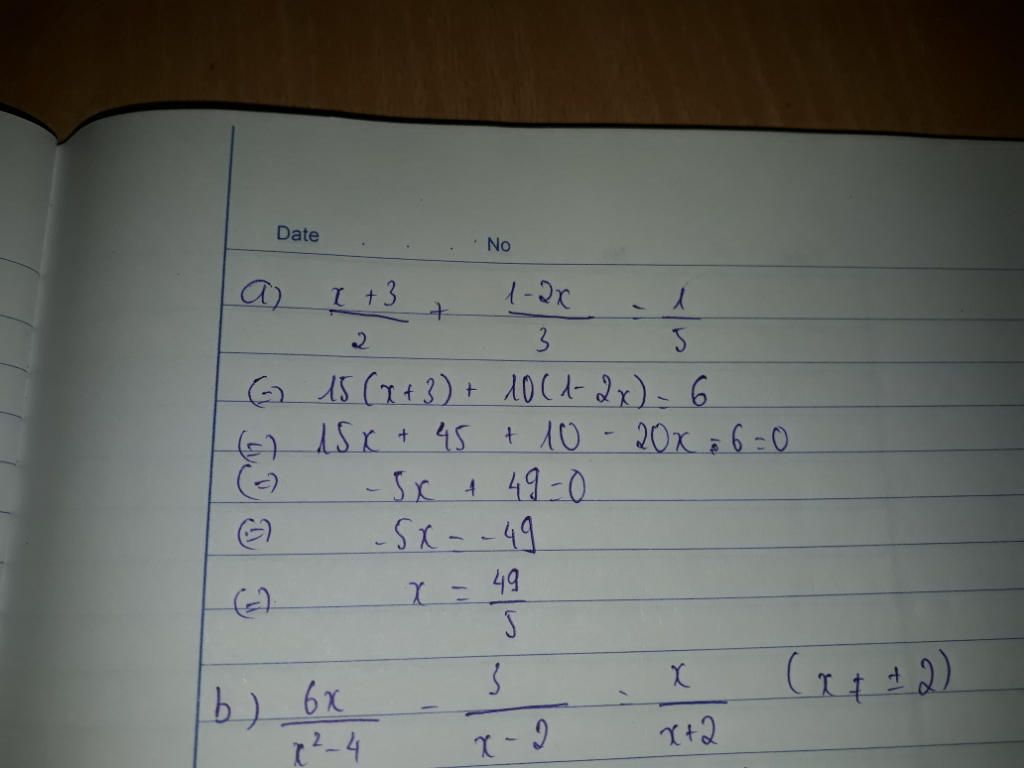 Date . . . . No
a) (x + 3)/2 + (1 - 2x)/3 = 1/5
(=) 15(x+3) + 10(1 - 2x) = 6
(=) 15x + 45 + 10 - 20x - 6 = 0
(=) - 5x + 49 = 0
(=) - 5x = - 49
(=) x = 49/5
b) 6x/(x² - 4) - 3/(x - 2) = x/(x+2) (x ≠ ± 2)